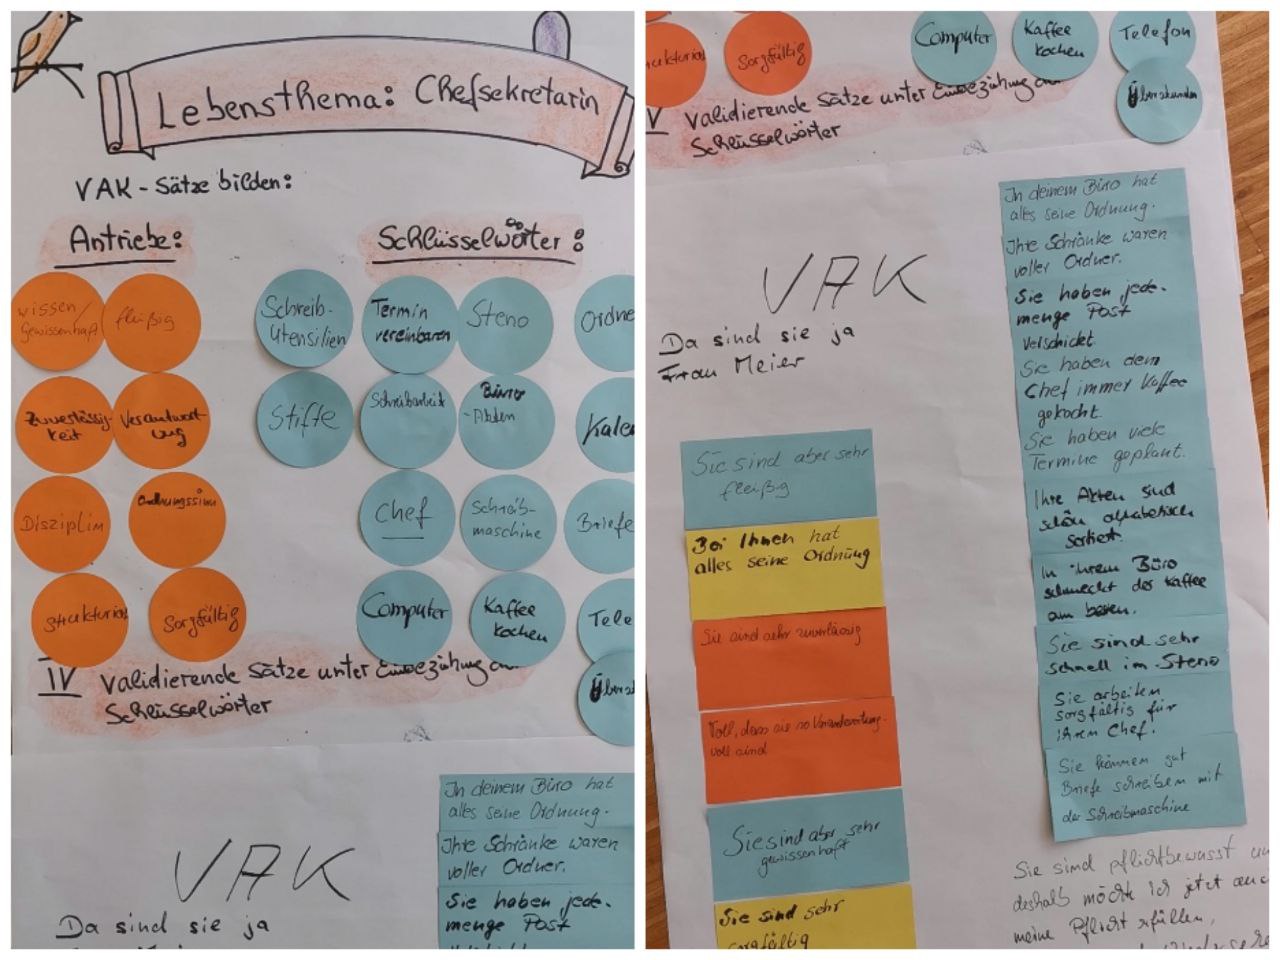 Lebensthema: Chefsekretärin
VAK - Sätze bilden:
Antriebe:
Schlüsselwörter:
wissen/
Gewissenhaft
fleißig
Schreib-
Utensilien
Termin
vereinbaren
Steno
Ordne
Zuverlässig-
keit
Verantwort
ung
Stifte
Schreibarbeit
Büro
-Akten
Kalen
Disziplin
Ordnungssinn
Chef
Schreib-
maschine
Briefe
Struktur
Sorgfältig
Computer
Kaffee
kochen
Tele
Übers
IV validierende Sätze unter Einbeziehung
Schlüsselwörter
In deinem Büro hat
alles seine Ordnung.
Ihre Schränke waren
voller Ordner.
Sie haben jede-
menge Post
VAK
Da sind sie ja
Sorgfältig
Computer
Kaffee
kochen
Telefon
Überstunden
V validierende Sätze unter Einbeziehung
Schlüsselwörter
VAK
Da sind sie ja
Frau Meier
Sie sind aber sehr
fleißig
Bei Ihnen hat
alles seine Ordnung
Sie sind sehr zuverlässig
Toll, dass sie so Verantwortung-
voll sind
Sie sind aber sehr
gewissenhaft
Sie sind sehr
sorgfältig
In deinem Büro hat
alles seine Ordnung.
Ihre Schränke waren
voller Ordner.
Sie haben jede-
menge Post
verschickt.
Sie haben dem
Chef immer Kaffee
gekocht.
Sie haben viele
Termine geplant.
Ihre Akten sind
schön alphabetisch
sortiert.
In Ihrem Büro
schmeckt der Kaffee
am besten.
Sie sind sehr
schnell im Steno
Sie arbeiten
sorgfältig für
ihren Chef.
Sie können gut
Briefe schreiben mit
der Schreibmaschine
Sie sind pflichtbewusst un
deshalb möchte ich jetzt auc
meine Pflicht erfüllen,